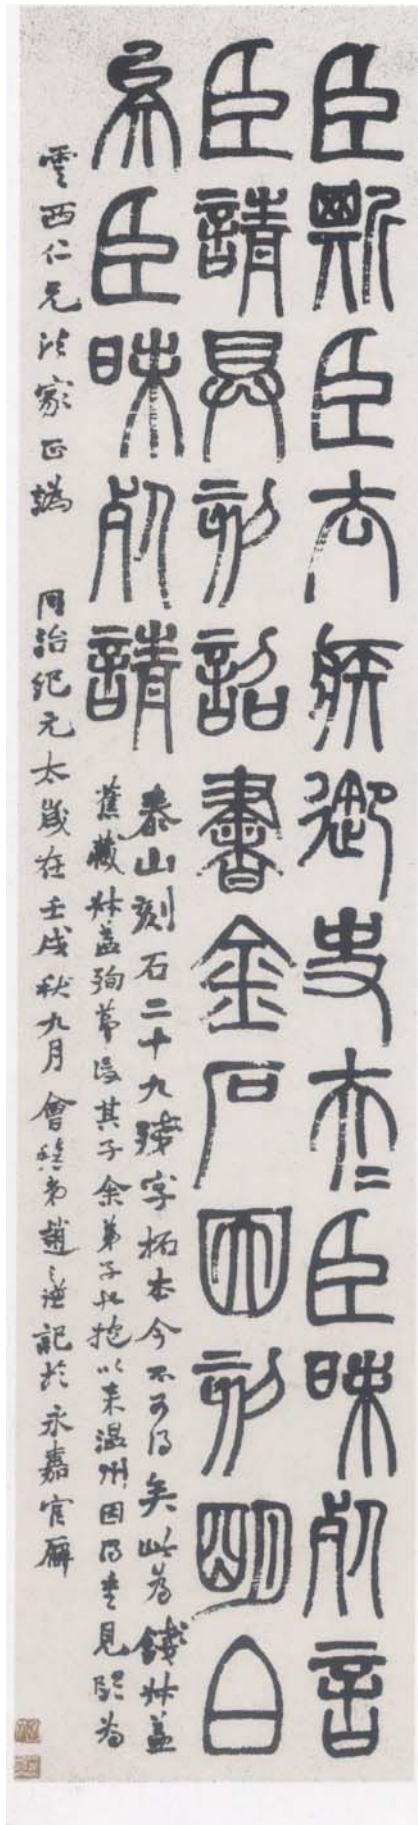 臣斯臣去疾御史夫＝臣昧死言
臣請具刻詔書金石因刻明白
矣臣昧死請
泰山刻石二十九殘字拓本今不可得矣此為錢叔蓋
舊藏叔蓋殉節後其子余弟子抱以來溫州因得
雲西仁兄法家正譌 同治紀元太歲在壬戌秋九月會稽弟趙之謙記於永嘉官廨